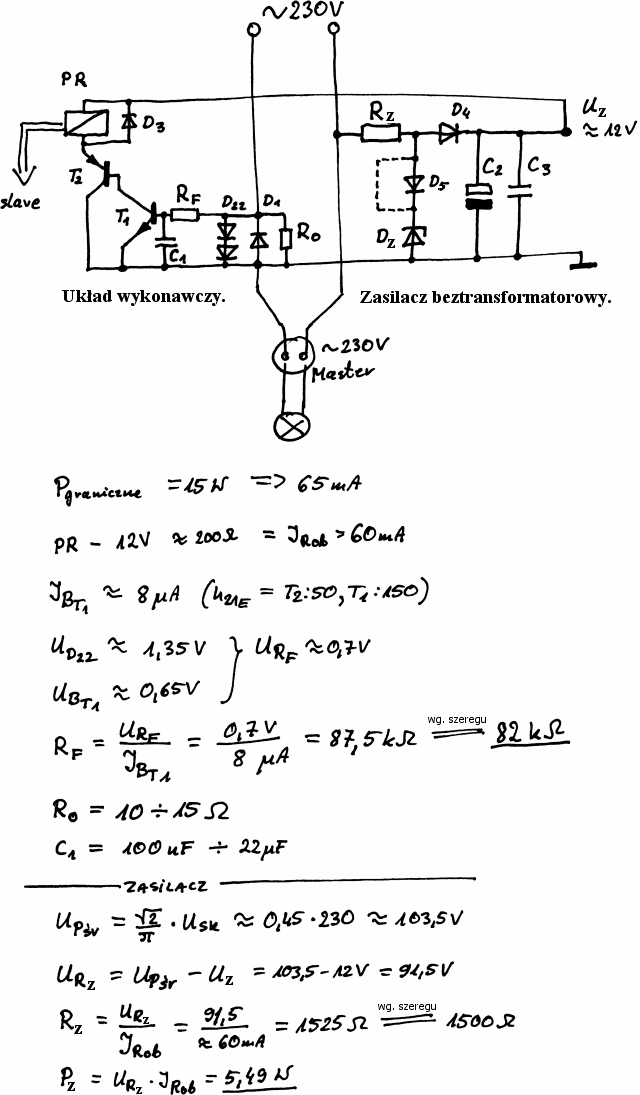 ~230V
PR
D3
T2
slave
T1
RF
D22
D1
R0
C1
RZ
D4
UZ
≈ 12V
D5
DZ
C2
C3
Układ wykonawczy.
Zasilacz beztransformatorowy.
~230V
Master
Pgraniczne = 15W => 65mA
PR - 12V ≈ 200Ω = JRob > 60mA
JBT1 ≈ 8μA (h21E = T2:50, T1:150)
UD22 ≈ 1,35V } URF ≈ 0,7V
UBT1 ≈ 0,65V
RF = URF / JBT1 = 0,7V / 8 μA = 87,5kΩ wg. szeregu = 82kΩ
R0 = 10 ÷ 15Ω
C1 = 100nF ÷ 22μF
ZASILACZ
UPśr = √2/π · USK ≈ 0,45 · 230 ≈ 103,5V
URZ = UPśr - UZ = 103,5 - 12V = 91,5V
RZ = URZ / JRob = 91,5 / ≈ 60mA = 1525Ω wg. szeregu = 1500Ω
PZ = URZ · JRob = 5,49W